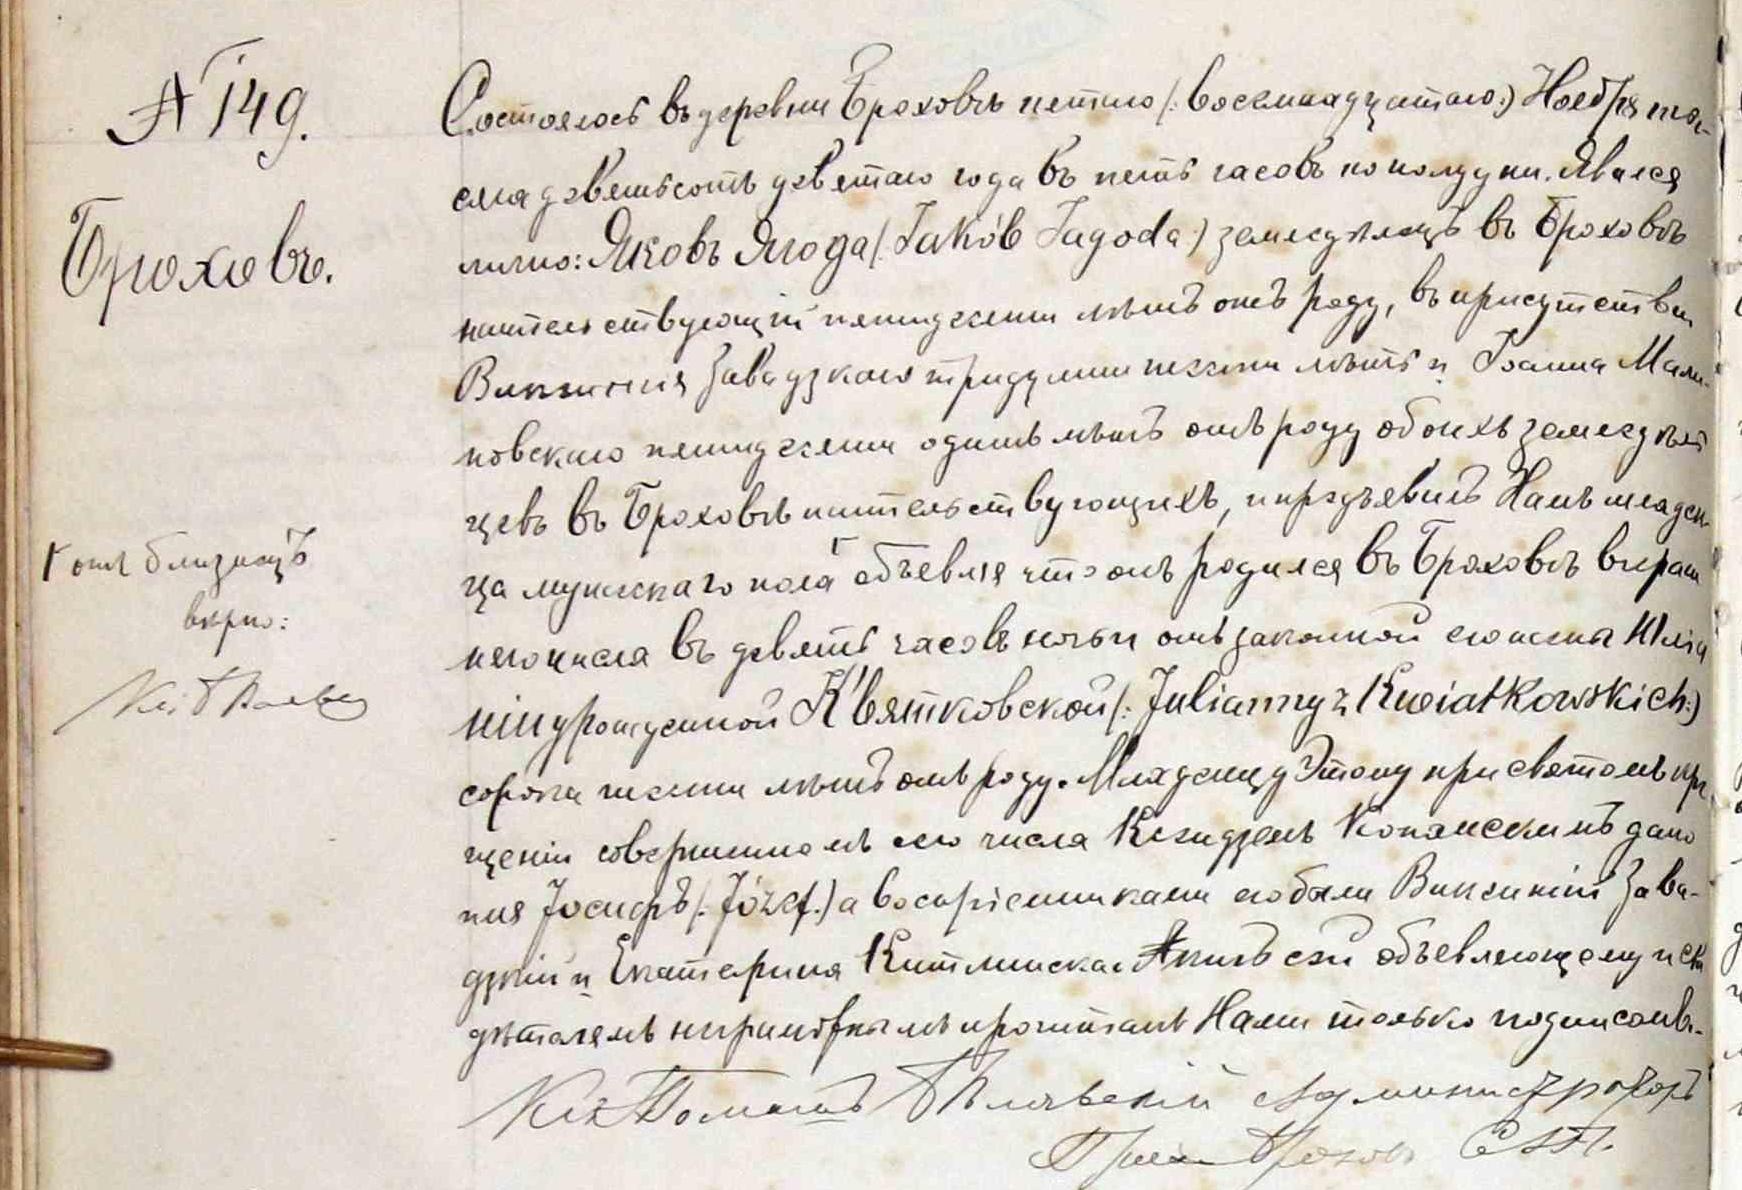 N 149.
Броховъ.
Состоялось въ деревни Броховѣ пятаго /: восемнадцатаго :/ Ноября ты-
сяча девятьсотъ девятаго года въ пять часовъ пополудни. Явился
лично: Яковъ Ягода /: Jakób Jagoda :/ земледѣлецъ въ Броховѣ
жительствующій пятидесяти лѣтъ отъ роду, въ присутствіи
Викентія Завадзкаго тридцати шести лѣтъ и Іоанна Мали-
новскаго пятидесяти одинъ лѣтъ отъ роду обоихъ земледѣль
цевъ въ Броховѣ жительствующихъ, и предъявилъ Намъ младен-
ца мужескаго пола ┌ объевляя что онъ родился въ Броховѣ вчераш
няго числа въ девять часовъ ночьи отъ законной его жены Юліа
ніи урожденной Квятковской /: Julianny z Kwiatkowskich :/
сорока шести лѣтъ отъ роду. Младенцу Этому при святомъ кре
щеніи совершенномъ сего числа Ксендземъ дано
имя Іосифъ /: Józef :/ а воспріемниками его были Викентій Зава-
дзкій и Екатерина Актъ сей объевляющему и сви
дѣтелямъ неграмотнымъ прочитанъ Нами только подписанъ.-
┌ отъ близнецъ
вѣрно:
Кс.
Кс. Томашъ Администраторъ
Прих. Брохов С.А.П.